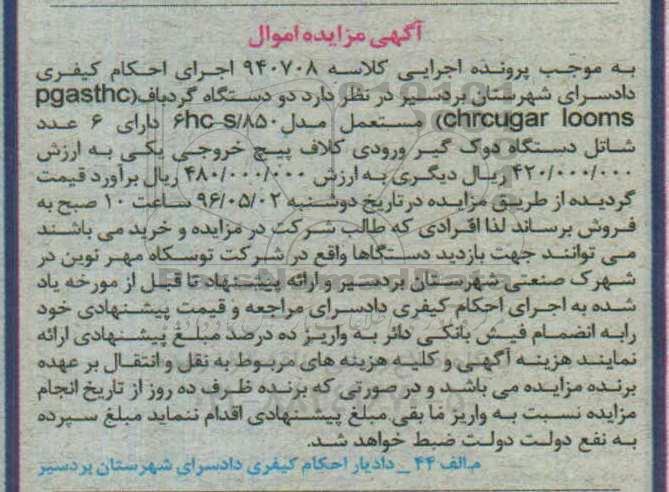 آگهی مزایده اموال
به موجب پرونده اجرایی کلاسه ۹۴۰۷۰۸ اجرای احکام کیفری
دادسرای شهرستان بردسیر در نظر دارد دو دستگاه گردباف(pgasthc
chrcugar looms) مستعمل مدل ۶hc-s/۸۵۰ دارای ۶ عدد
شاتل دستگاه دوک گیر ورودی کلاف پیچ خروجی یکی به ارزش
۴۲۰/۰۰۰/۰۰۰ ریال دیگری به ارزش ۴۸۰/۰۰۰/۰۰۰ ریال برآورد قیمت
گردیده از طریق مزایده در تاریخ دوشنبه ۹۶/۰۵/۰۲ ساعت ۱۰ صبح به
فروش برساند لذا افرادی که طالب شرکت در مزایده و خرید می باشند
می توانند جهت بازدید دستگاها واقع در شرکت توسکاه مهر نوین در
شهرک صنعتی شهرستان بردسیر و ارائه پیشنهاد تا قبل از مورخه یاد
شده به اجرای احکام کیفری دادسرای مراجعه و قیمت پیشنهادی خود
رابه انضمام فیش بانکی دائر به واریز ده درصد مبلغ پیشنهادی ارائه
نمایند هزینه آگهی و کلیه هزینه های مربوط به نقل و انتقال بر عهده
برنده مزایده می باشد و در صورتی که برنده ظرف ده روز از تاریخ انجام
مزایده نسبت به واریز ما بقی مبلغ پیشنهادی اقدام ننماید مبلغ سپرده
به نفع دولت دولت ضبط خواهد شد.
م.الف ۴۴ _ دادیار احکام کیفری دادسرای شهرستان بردسیر
ParsNamadData